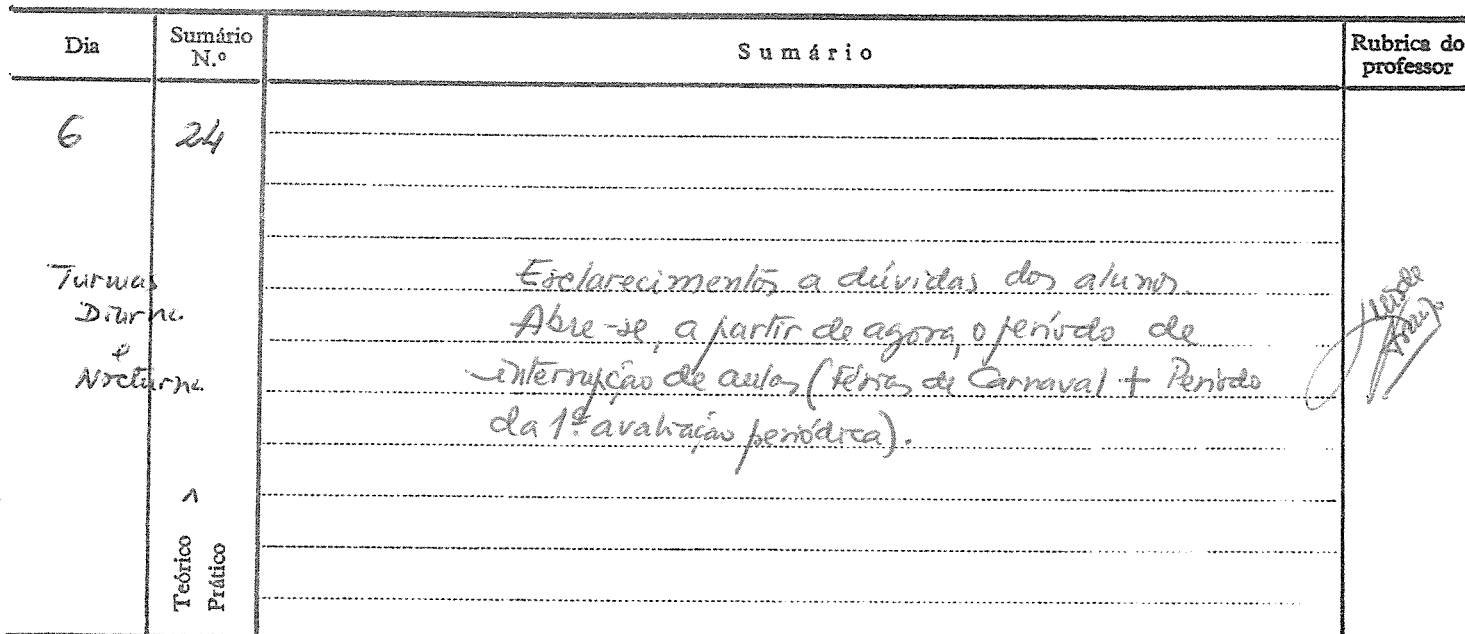 Dia
Sumário
N.º
Sumário
Rubrica do
professor
6
24
Turmas
Diurna
e
Nocturna
Esclarecimentos a dúvidas dos alunos.
Abre-se, a partir de agora, o período de
interrupção de aulas (Férias de Carnaval + Período
da 1ª avaliação periódica).
Teórico
Prático